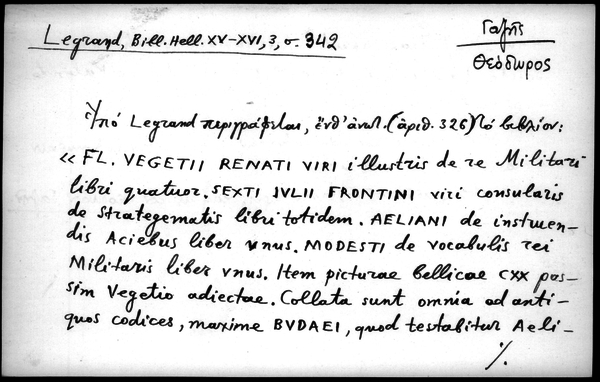 Legrand, Bill. Hell. XV-XVI, 3, σ. 342
Γαζῆς
Θεόδωρος
Ὑπό Legrand περιγράφεται, ἐνθ' ἀνωτ. (ἀριθ. 326) τό βιβλίον:
« FL. VEGETII RENATI VIRI illustris de re Militari
libri quatuor. SEXTI IVLII FRONTINI viri consularis
de Strategematis libri totidem. AELIANI de instruen-
dis Aciebus liber vnus. MODESTI de vocabulis rei
Militaris liber vnus. Item picturae bellicae CXX pas-
sim Vegetio adiectae. Collata sunt omnia ad anti-
quos codices, maxime BVDAEI, quod testabitur Aeli-
./.